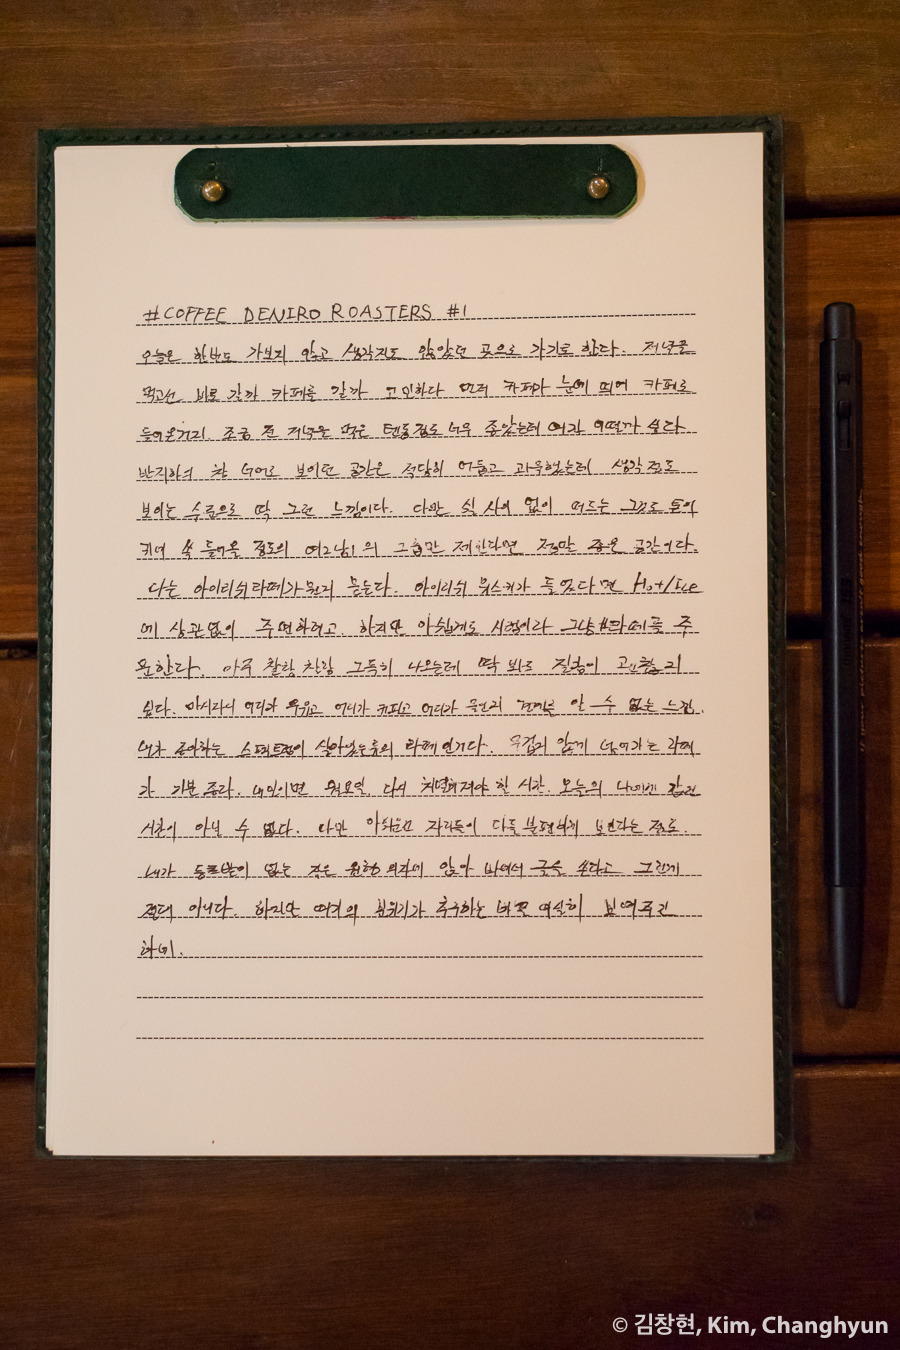 #COFFEE DENIRO ROASTERS #1
오늘은 한번도 가보지 않고 생각지도 않았던 곳으로 가기로 한다. 저녁을
먹고선 바로 갈까 카페를 갈까 고민하다 먼저 카페가 눈에 띄어 카페로
들어온거지. 조금 전 저녁을 먹은 텐동집도 너무 좋았는데 여긴 어떨까 싶다
반지하의 창 너머로 보이던 공간은 적당히 어둡고 과묵했는데 생각 정도
보이는 수준으로 딱 그런 느낌이다. 다만 쉴 사이 없이 떠드는 그으로
키며 쏙 들어올 정도의 여2남1의 그룹만 제한다면 정말 좋은 공간이다.
나는 아이리쉬라떼가 뭔지 묻는다. 아이리쉬 위스키가 들었다면 Hot/Ice
에 상관없이 주문하려고. 하지만 아쉽게도 시럽이라 그냥 라떼를 주
문한다. 아주 찰랑 찰랑 그득히 나오는데 딱 봐도 질감이
싶다. 마시자니 어디가 우유고 어디가 커피고 어디가 뭔지 알 수 없는 느낌.
내가 좋아하는 스펙트럼이 살아있는류의 라떼인거다. 무겁지 않게 넘어가는 라떼
가 기분 좋다. 내일이면 월요일. 다시 치열해져야 할 시간. 오늘의 나에겐 값진
시간이 아닐 수 없다. 다만 아쉬운건 자리들이 다들 불편하게 보인다는 정도.
내가 등받이 없는 작은 원형 의자에 앉아 바에서 글을 쓴다고 그런게
절대 아니다. 하지만 여기의 분위기가 추구하는 바를 여실히 보여주긴
하네.
© 김창현, Kim, Changhyun